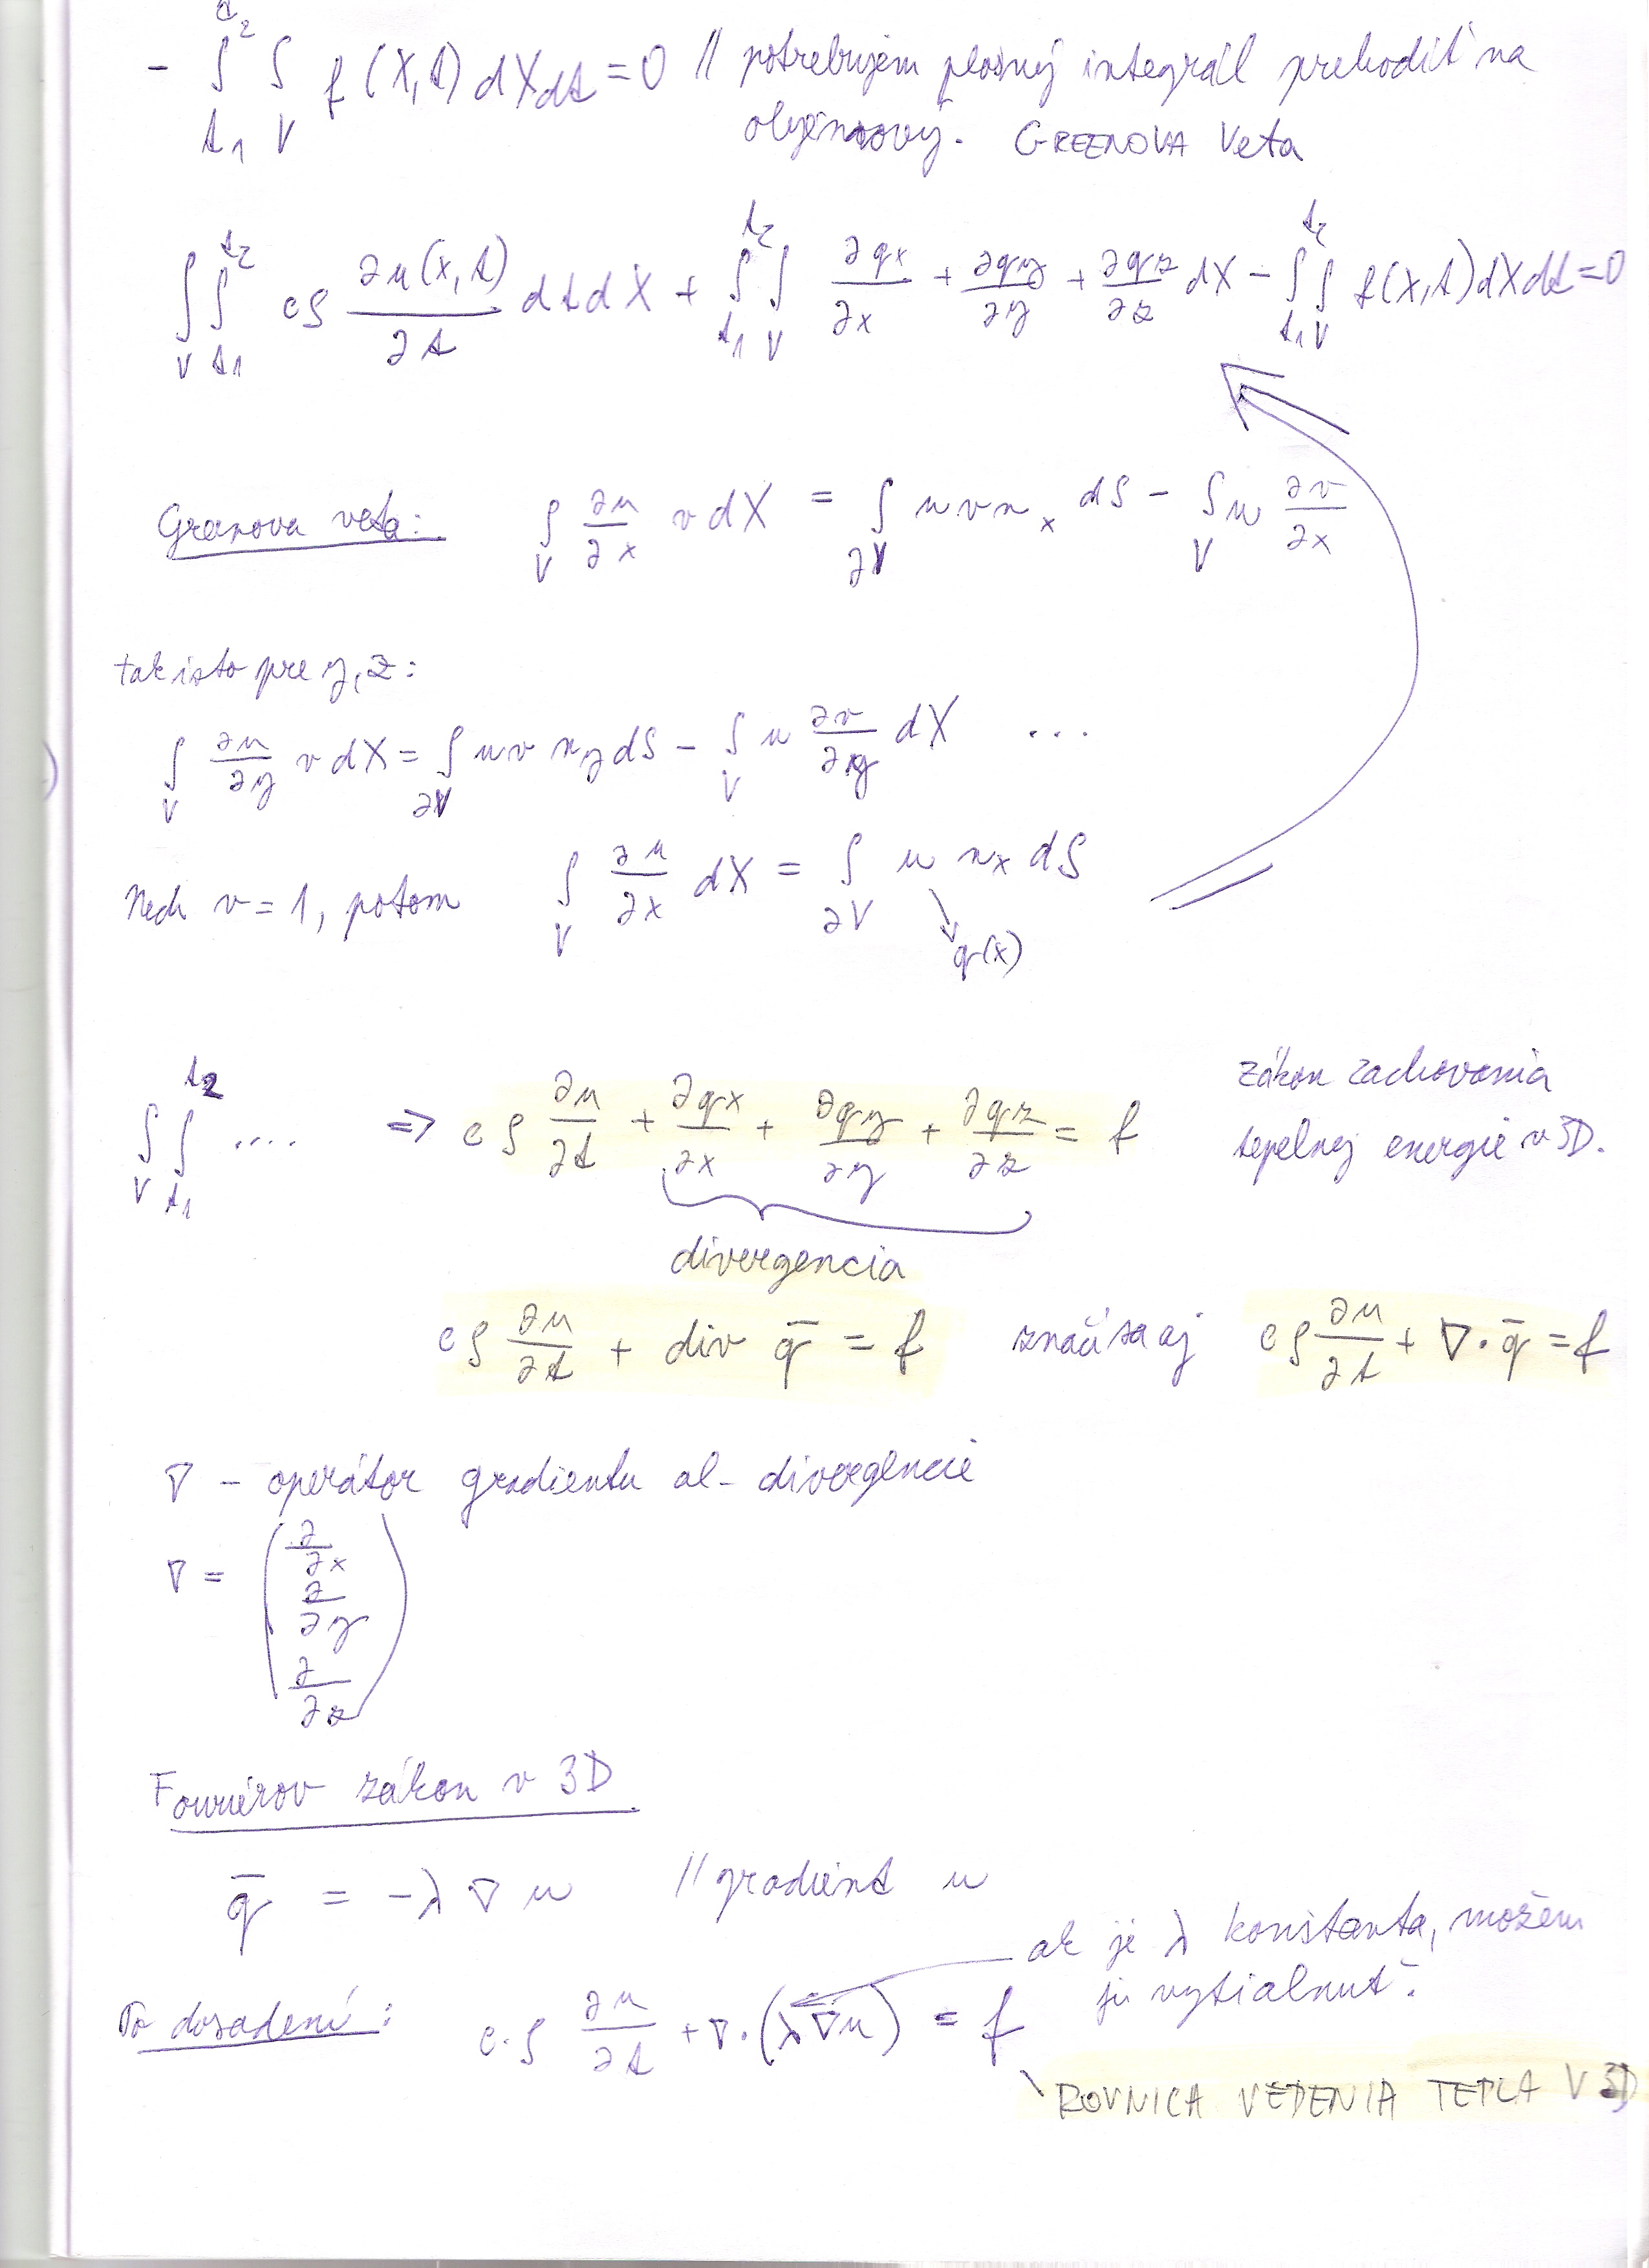 - ∫_{t₁}^{t₂} ∫_V f(X,t) dXdt = 0 // potrebujem plošný integrál prehodiť na
objemový. GREENOVA Veta
∫_V ∫_{t₁}^{t₂} cρ ∂u(x,t)/∂t dtdX + ∫_{t₁}^{t₂} ∫_V ∂qx/∂x + ∂qy/∂y + ∂qz/∂z dX - ∫_{t₁}^{t₂} ∫_V f(X,t)dXdt = 0
Greenova veta: ∫_V ∂u/∂x v dX = ∫_{∂V} u v n_x dS - ∫_V u ∂v/∂x
tak isto pre y, z:
∫_V ∂u/∂y v dX = ∫_{∂V} u v n_y dS - ∫_V u ∂v/∂y dX ...
Nech v = 1, potom ∫_V ∂u/∂x dX = ∫_{∂V} u n_x dS
q(x)
∫_V ∫_{t₁}^{t₂} .... => cρ ∂u/∂t + ∂qx/∂x + ∂qy/∂y + ∂qz/∂z = f zákon zachovania
tepelnej energie v 3D.
divergencia
cρ ∂u/∂t + div q̄ = f značí sa aj cρ ∂u/∂t + ∇·q̄ = f
∇ - operátor gradientu al- divergencie
∇ = (∂/∂x ∂/∂y ∂/∂z)
Fouriérov zákon v 3D
q̄ = -λ ∇ u // gradient u
ak je λ konštanta, možem
ju vytiahnuť.
Po dosadení: c·ρ ∂u/∂t + ∇·(λ∇u) = f
ROVNICA VEDENIA TEPLA V 3D